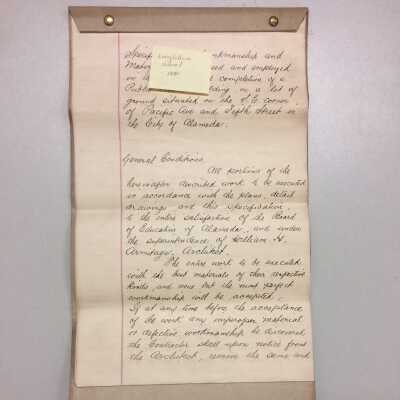 Longfellow
School
Specifi nkmanship and
Mater sed and employed
in completion of a
Public lding on a lot of
ground situated on the corner
of Pacific Ave and Fifth Street in
the City of Alameda.
General Conditions.
All portions of the
hereinafter described work to be executed
in accordance with the plans, detail
drawings and this specification,
to the entire satisfaction of the Board
of Education of Alameda, and under
the superintendence of William H.
Armitage, Architect.
The entire work to be executed
with the best materials of their respective
kinds, and none but the most perfect
workmanship will be accepted.
If at any time before the acceptance
of the work any improper material
or defective workmanship be discovered
the Contractor shall upon notice from
the Architect, remove the same and